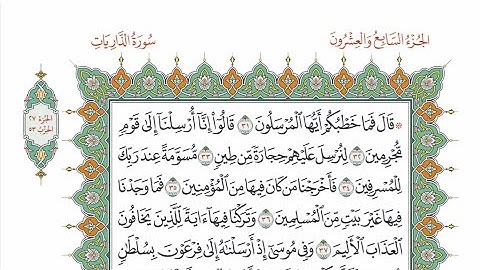 الجزء السابع والعشرون
سورة الذاريات
الجزء ٢٧
الحزب ٥٣
۞ قَالَ فَمَا خَطْبُكُمْ أَيُّهَا الْمُرْسَلُونَ ٣١ قَالُوا إِنَّا أُرْسِلْنَا إِلَى قَوْمٍ
مُّجْرِمِينَ ٣٢ لِنُرْسِلَ عَلَيْهِمْ حِجَارَةً مِّن طِينٍ ٣٣ مُّسَوَّمَةً عِندَ رَبِّكَ
لِلْمُسْرِفِينَ ٣٤ فَأَخْرَجْنَا مَن كَانَ فِيهَا مِنَ الْمُؤْمِنِينَ ٣٥ فَمَا وَجَدْنَا
فِيهَا غَيْرَ بَيْتٍ مِّنَ الْمُسْلِمِينَ ٣٦ وَتَرَكْنَا فِيهَا ءَايَةً لِّلَّذِينَ يَخَافُونَ
الْعَذَابَ الْأَلِيمَ ٣٧ وَفِي مُوسَى إِذْ أَرْسَلْنَاهُ إِلَى فِرْعَوْنَ بِسُلْطَانٍ